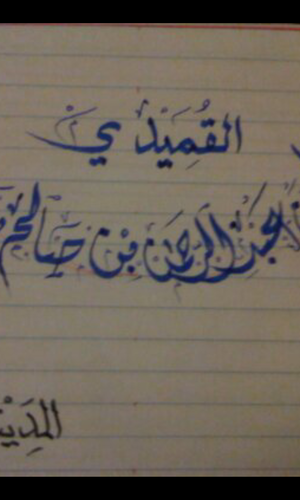 القُمَيْدِي
عبد الرحمن بن صالح
المدين